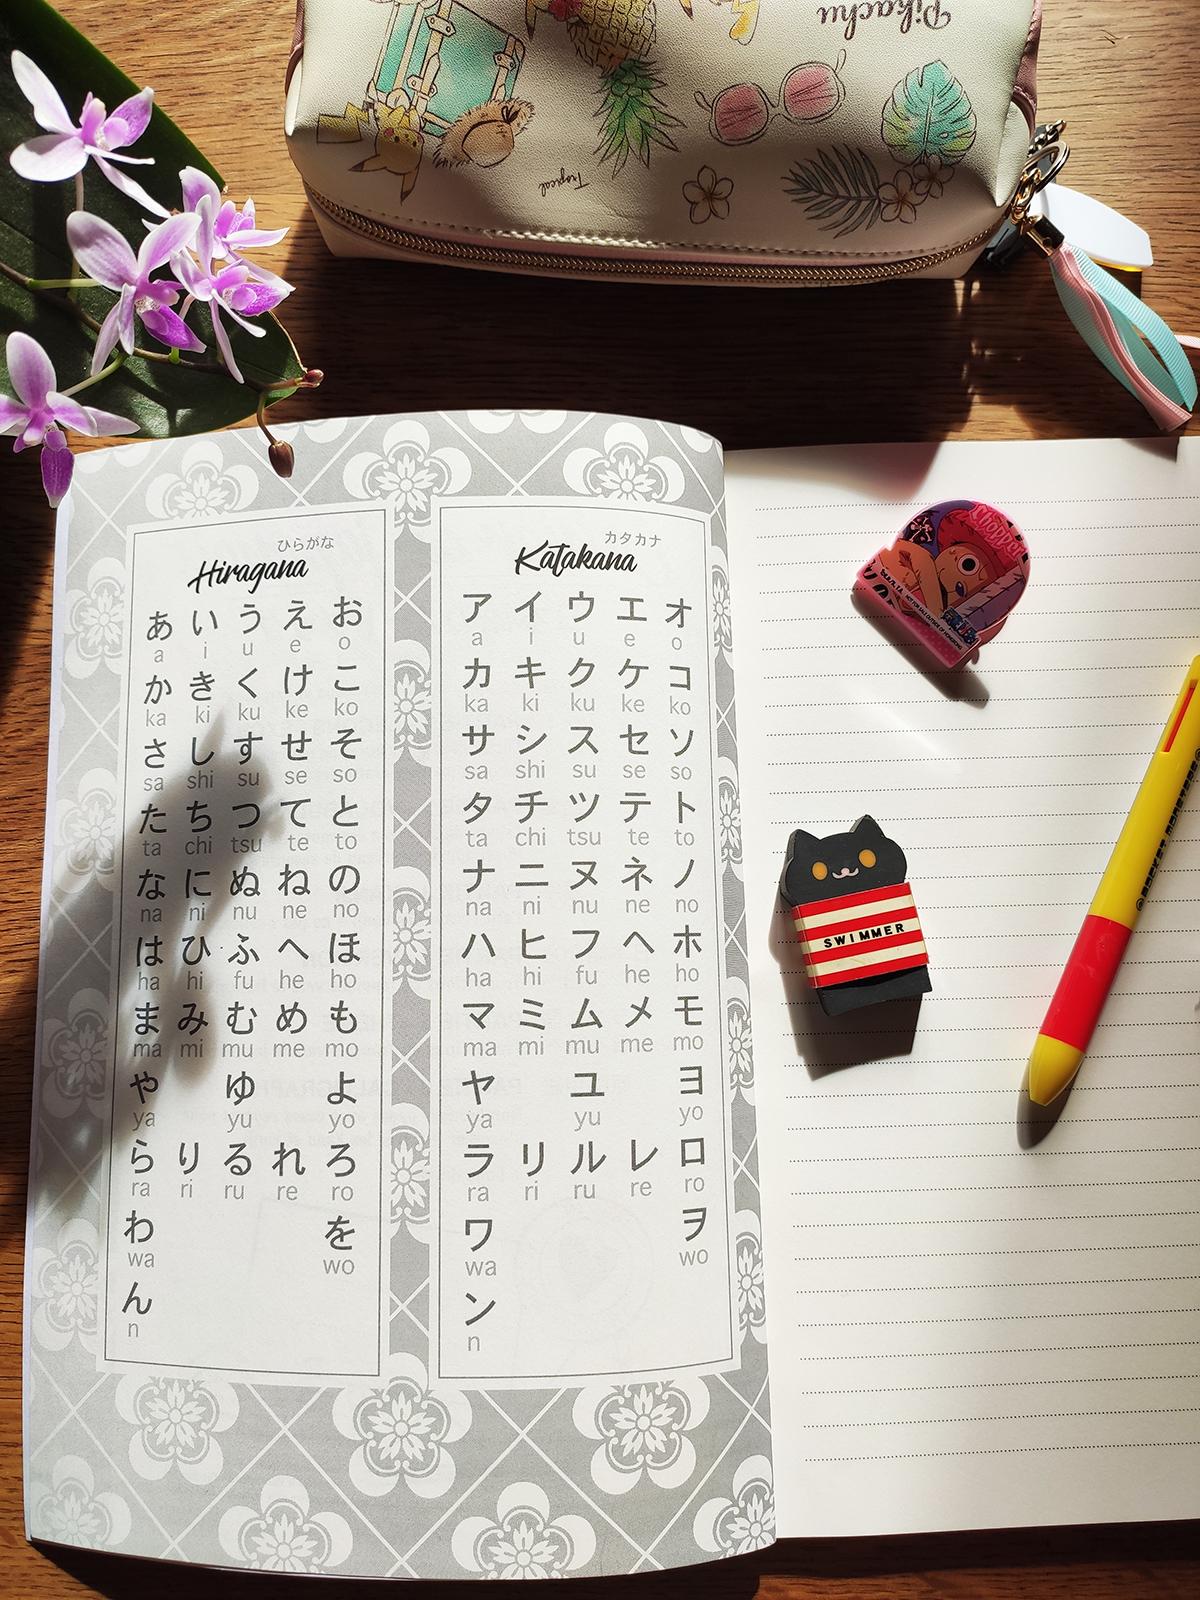 Pikachu
Tropical
ひらがな
Hiragana
あ い う え お
a i u e o
か き く け こ
ka ki ku ke ko
さ し す せ そ
sa shi su se so
た ち つ て と
ta chi tsu te to
な に ぬ ね の
na ni nu ne no
は ひ ふ へ ほ
ha hi fu he ho
ま み む め も
ma mi mu me mo
や ゆ よ
ya yu yo
ら り る れ ろ
ra ri ru re ro
わ を
wa wo
ん
n
カタカナ
Katakana
ア イ ウ エ オ
a i u e o
カ キ ク ケ コ
ka ki ku ke ko
サ シ ス セ ソ
sa shi su se so
タ チ ツ テ ト
ta chi tsu te to
ナ ニ ヌ ネ ノ
na ni nu ne no
ハ ヒ フ ヘ ホ
ha hi fu he ho
マ ミ ム メ モ
ma mi mu me mo
ヤ ユ ヨ
ya yu yo
ラ リ ル レ ロ
ra ri ru re ro
ワ ヲ
wa wo
ン
n
Chopper
SWIMMER